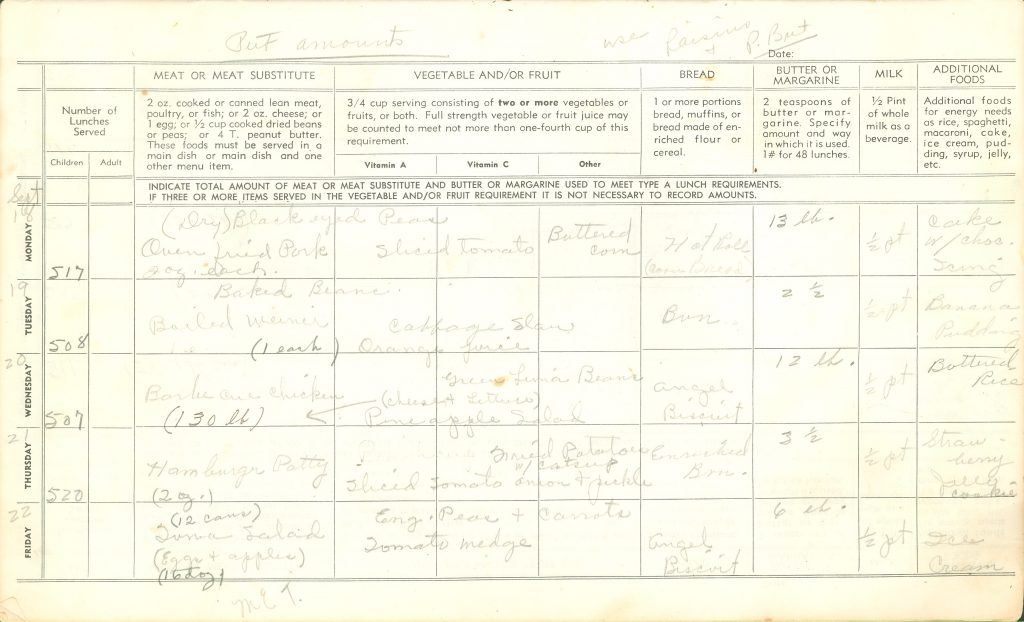 Put amounts
use Raisins + P. But
Date:
Number of Lunches Served
Children
Adult
MEAT OR MEAT SUBSTITUTE
2 oz. cooked or canned lean meat,
poultry, or fish; or 2 oz. cheese; or
1 egg; or ½ cup cooked dried beans
or peas; or 4 T. peanut butter.
These foods must be served in a
main dish or main dish and one
other menu item.
VEGETABLE AND/OR FRUIT
3/4 cup serving consisting of two or more vegetables or
fruits, or both. Full strength vegetable or fruit juice may
be counted to meet not more than one-fourth cup of this
requirement.
Vitamin A
Vitamin C
Other
BREAD
1 or more portions
bread, muffins, or
bread made of en-
riched flour or
cereal.
BUTTER OR
MARGARINE
2 teaspoons of
butter or mar-
garine. Specify
amount and way
in which it is used.
1# for 48 lunches.
MILK
½ Pint
of whole
milk as a
beverage.
ADDITIONAL
FOODS
Additional foods
for energy needs
as rice, spaghetti,
macaroni, cake,
ice cream, pud-
ding, syrup, jelly,
etc.
INDICATE TOTAL AMOUNT OF MEAT OR MEAT SUBSTITUTE AND BUTTER OR MARGARINE USED TO MEET TYPE A LUNCH REQUIREMENTS.
IF THREE OR MORE ITEMS SERVED IN THE VEGETABLE AND/OR FRUIT REQUIREMENT IT IS NOT NECESSARY TO RECORD AMOUNTS.
Sept
18
MONDAY
517
(Dry) Black eyed Peas
Oven fried Pork
2 oz. each.
Sliced tomato
Buttered
corn
Hot Roll
(corn Bread)
13 lb.
½ pt
Cake
w/ choc.
Icing
19
TUESDAY
508
Baked Beans
Boiled weiner
(1 each)
Cabbage Slaw
Orange juice
Bun
2 ½
½ pt
Banana
Pudding
20
WEDNESDAY
507
Barbecue chicken
(130 lb)
Green Lima Beans
(cheese + Lettuce)
Pineapple Salad
Angel
Biscuit
12 lb.
½ pt
Buttered
Rice
21
THURSDAY
520
Hamburger Patty
(2 oz.)
Fried Potatoes
w/ catsup
Sliced Tomato onion + pickle
Enriched
Bun.
3 ½
½ pt
Straw-
berry
Jello
cookie
22
FRIDAY
(12 cans)
Tuna Salad
(Eggs + apples)
(16 doz)
Eng. Peas + Carrots
Tomato wedge
Angel
Biscuit
6 lb.
½ pt
Ice
Cream
M E T.